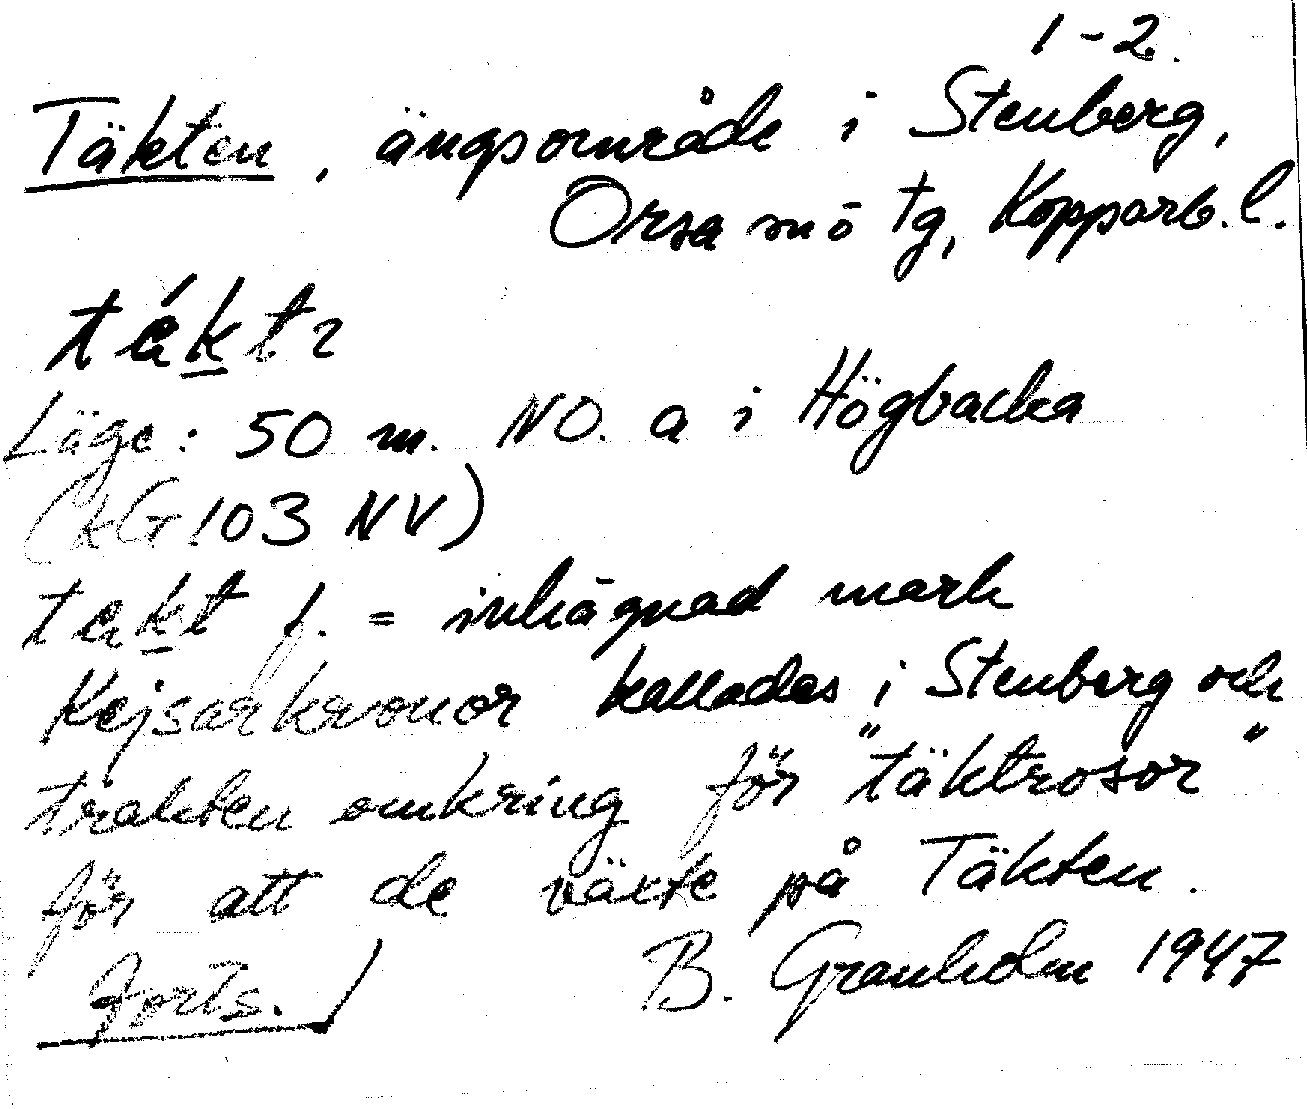 1-2.
Täkten, ängsområde i Stenberg,
Orsa mö tg, Kopparb. l.
tákt2
Läge: 50 m. NO. a i Högbacka
(kG 103 NV)
takt f. = inhägnad mark
Kejsarkronor kallades i Stenberg och
trakten omkring för "täktrosor"
för att de växte på Täkten.
forts./ B. Granholm 1947